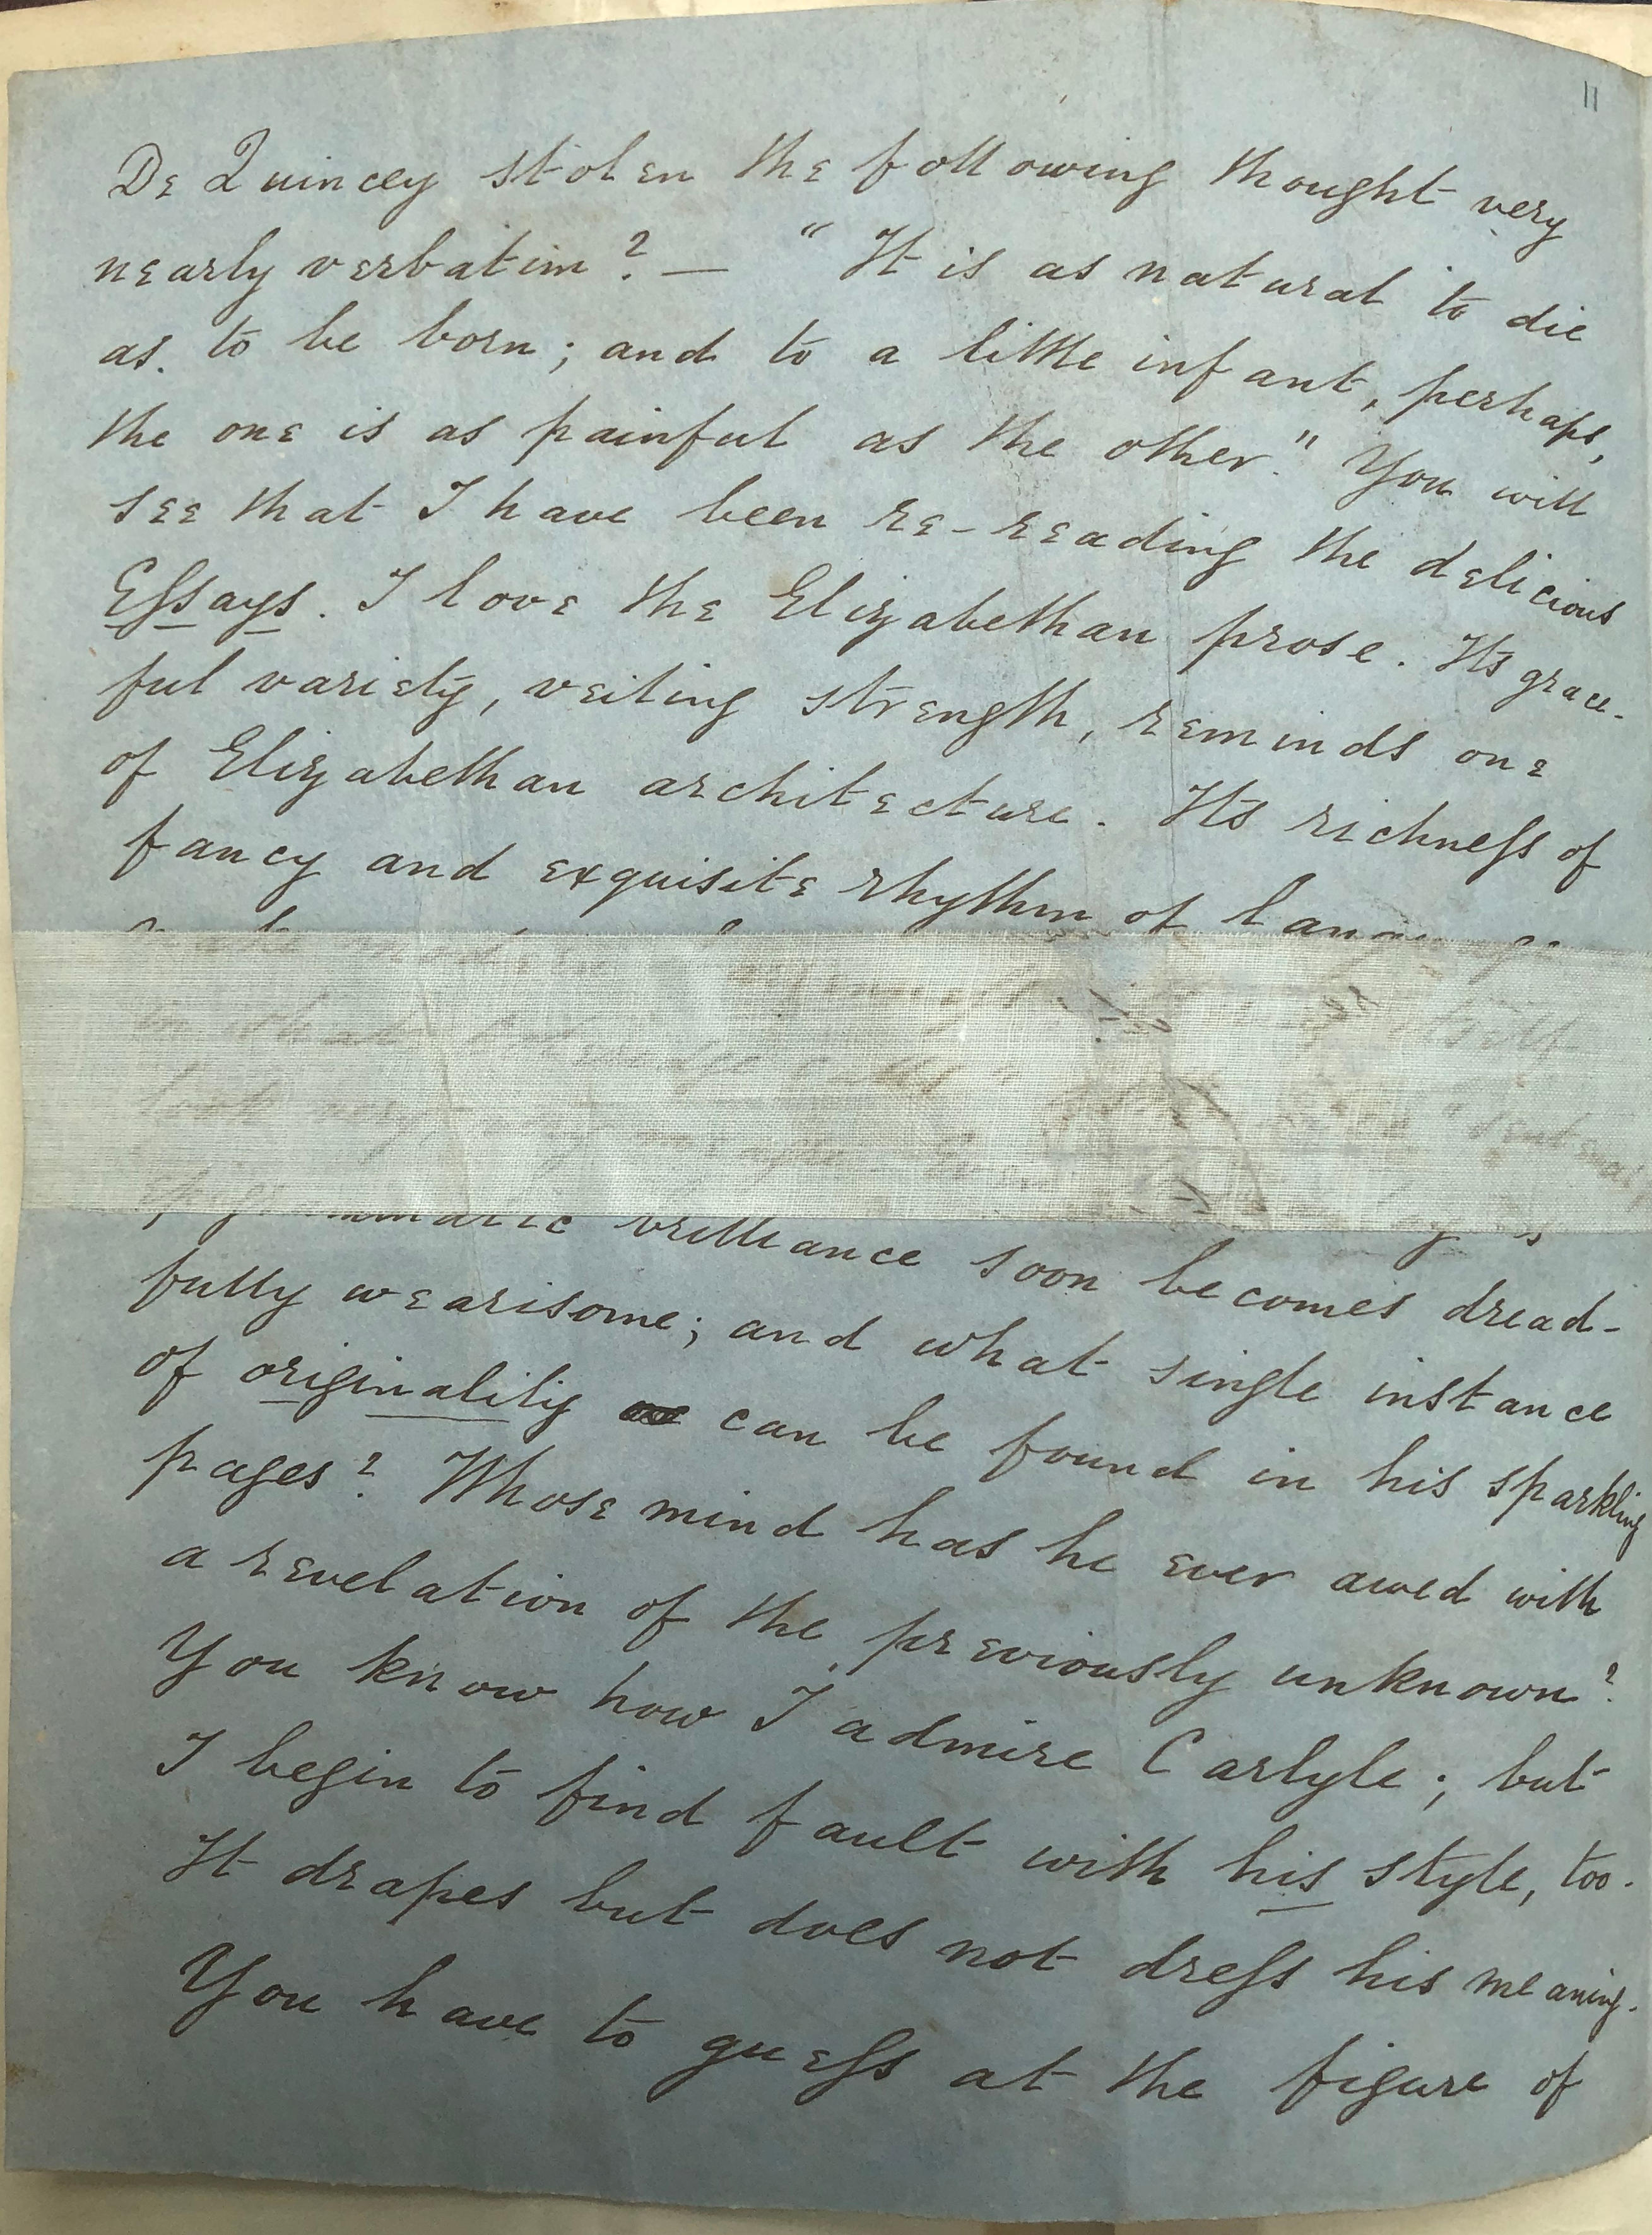 11
De Quincey stolen the following thought very
nearly verbatim? — "It is as natural to die
as to be born; and to a little infant, perhaps,
the one is as painful as the other." You will
see that I have been re-reading the delicious
Eſsays. I love the Elizabethan prose. Its grace-
ful variety, veiling strength, reminds one
of Elizabethan architecture. Its richneſs of
fancy and exquisite rhythm of language
itself
in what
look very
brilliance soon becomes dread-
fully wearisome; and what single instance
of originality can be found in his sparkling
pages? Whose mind has he ever awed with
a revelation of the previously unknown?
You know how I admire Carlyle; but
I begin to find fault with his style, too.
It drapes but does not dreſs his meaning.
You have to gueſs at the figure of